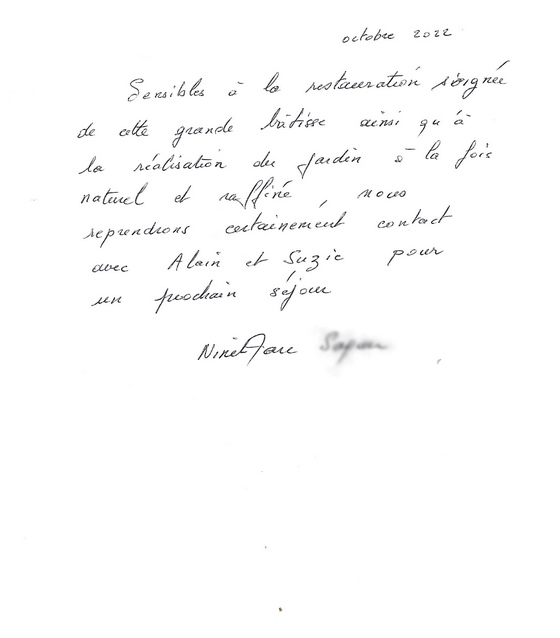 octobre 2022
Sensibles à la restauration soignée
de cette grande bâtisse ainsi qu'à
la réalisation du jardin à la fois
naturel et raffiné, nous
reprendrons certainement contact
avec Alain et Suzie pour
un prochain séjour